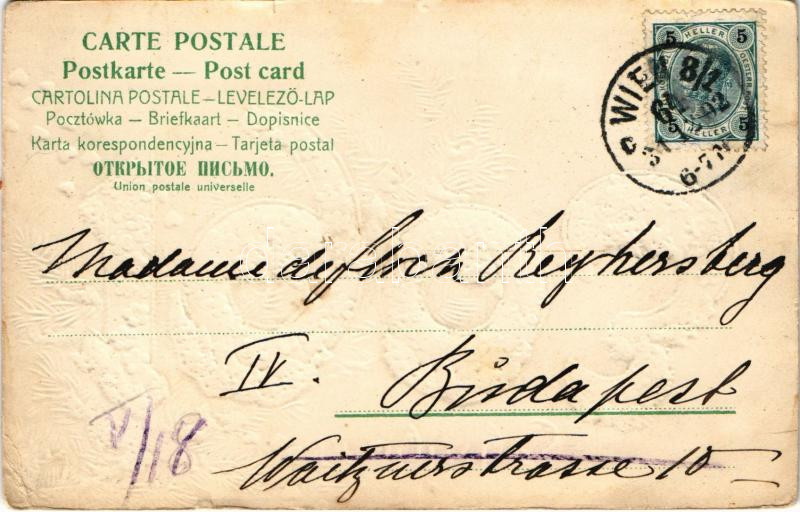 CARTE POSTALE
Postkarte — Post card
CARTOLINA POSTALE – LEVELEZŐ-LAP
Pocztówka – Briefkaart – Dopisnice
Karta korespondencyjna – Tarjeta postal
ОТКРЫТОЕ ПИСЬМО.
Union postale universelle
5 HELLER 5
5 HELLER 5
WIEN
6-7 N
Madame de Reyhersberg
IV. Budapest
Waitznerstrasse 10
V/18